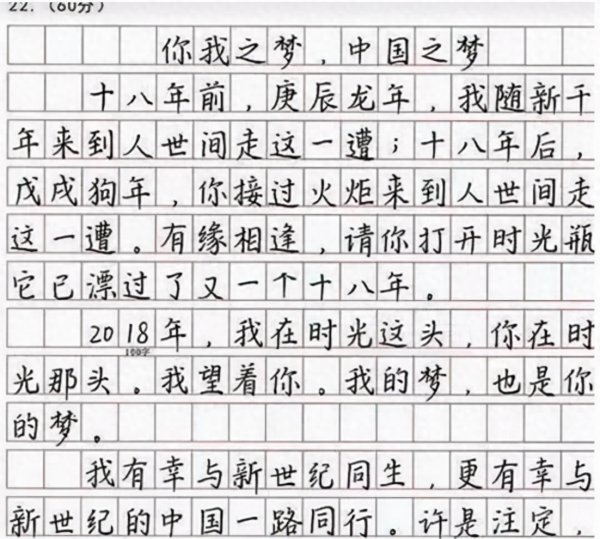 22.(60分)
你我之梦，中国之梦
十八年前，庚辰龙年，我随新千
年来到人世间走这一遭；十八年后，
戊戌狗年，你接过火炬来到人世间走
这一遭。有缘相逢，请你打开时光瓶
它已漂过了又一个十八年。
2018年，我在时光这头，你在时
100字
光那头。我望着你。我的梦，也是你
的梦。
我有幸与新世纪同生，更有幸与
新世纪的中国一路同行。许是注定，